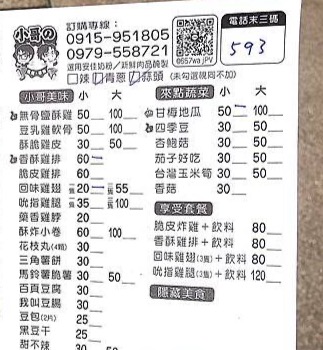 小哥の
訂購專線：
0915-951805
0979-558721
選用安佳奶粉／新鮮肉品醃製
@657wa jPV
電話末三碼
593
□辣 □青蔥 □蒜頭 (未勾選視同不加)
小哥美味 小 大
無骨鹽酥雞 50 100
豆乳雞軟骨 50 100
酥脆雞皮 30 50
香酥雞排 60
脆皮雞排 60
回味雞翅 二隻20 三隻55
吮指雞腿 一隻35 三隻100
藥香雞脖 20
酥炸小卷 60 100
花枝丸(4顆) 30
三角薯餅 30
馬鈴薯脆薯 30 50
百頁豆腐 30
我叫豆腸 30
豆包(2片) 25
黑豆干 25
甜不辣 30 50
來點蔬菜 小 大
甘梅地瓜 50 100
四季豆 30 50
杏鮑菇 30 50
茄子好吃 30 50
台灣玉米筍 30 50
香菇 30
享受套餐
脆皮炸雞＋飲料 80
香酥雞排＋飲料 80
回味雞翅(3隻)＋飲料 80
吮指雞腿(3隻)＋飲料 120
隱藏美食